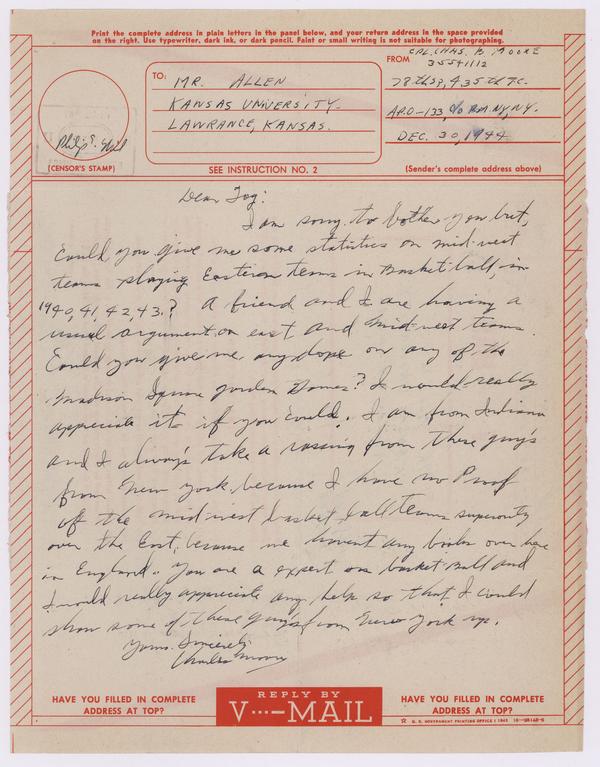 Print the complete address in plain letters in the panel below, and your return address in the space provided
on the right. Use typewriter, dark ink, or dark pencil. Faint or small writing is not suitable for photographing.
TO:
MR. ALLEN
KANSAS UNIVERSITY.
LAWRANCE, KANSAS.
FROM
CPL. CHAS. B. MOORE
35541112
78th SP, 435th T.C.
A.P.O-133, c/o P.M. N.Y, N.Y.
DEC. 30, 1944
(CENSOR'S STAMP)
SEE INSTRUCTION NO. 2
(Sender's complete address above)
Dear Fog:
I am sorry to bother you but,
Could you give me some statistics on mid-west
teams playing Eastern teams in Basket ball, in
1940, 41, 42, 43.? A friend and I are having a
usual argument on east and mid-west teams.
Could you give me any dope on any of the
Madison Square Garden Games? I would really
appreciate it if you could. I am from Indiana
and I always take a rassing from these guy's
from New York, because I have no Proof
off the mid-west basket ball teams superority
over the East, because we havent any books over here
in England. You are a expert on basket-ball and
I would really appreciate any help so that I could
show some of these guys from New York up.
Yours Sincerely
Charles Moore
HAVE YOU FILLED IN COMPLETE
ADDRESS AT TOP?
REPLY BY
V···—MAIL
HAVE YOU FILLED IN COMPLETE
ADDRESS AT TOP?